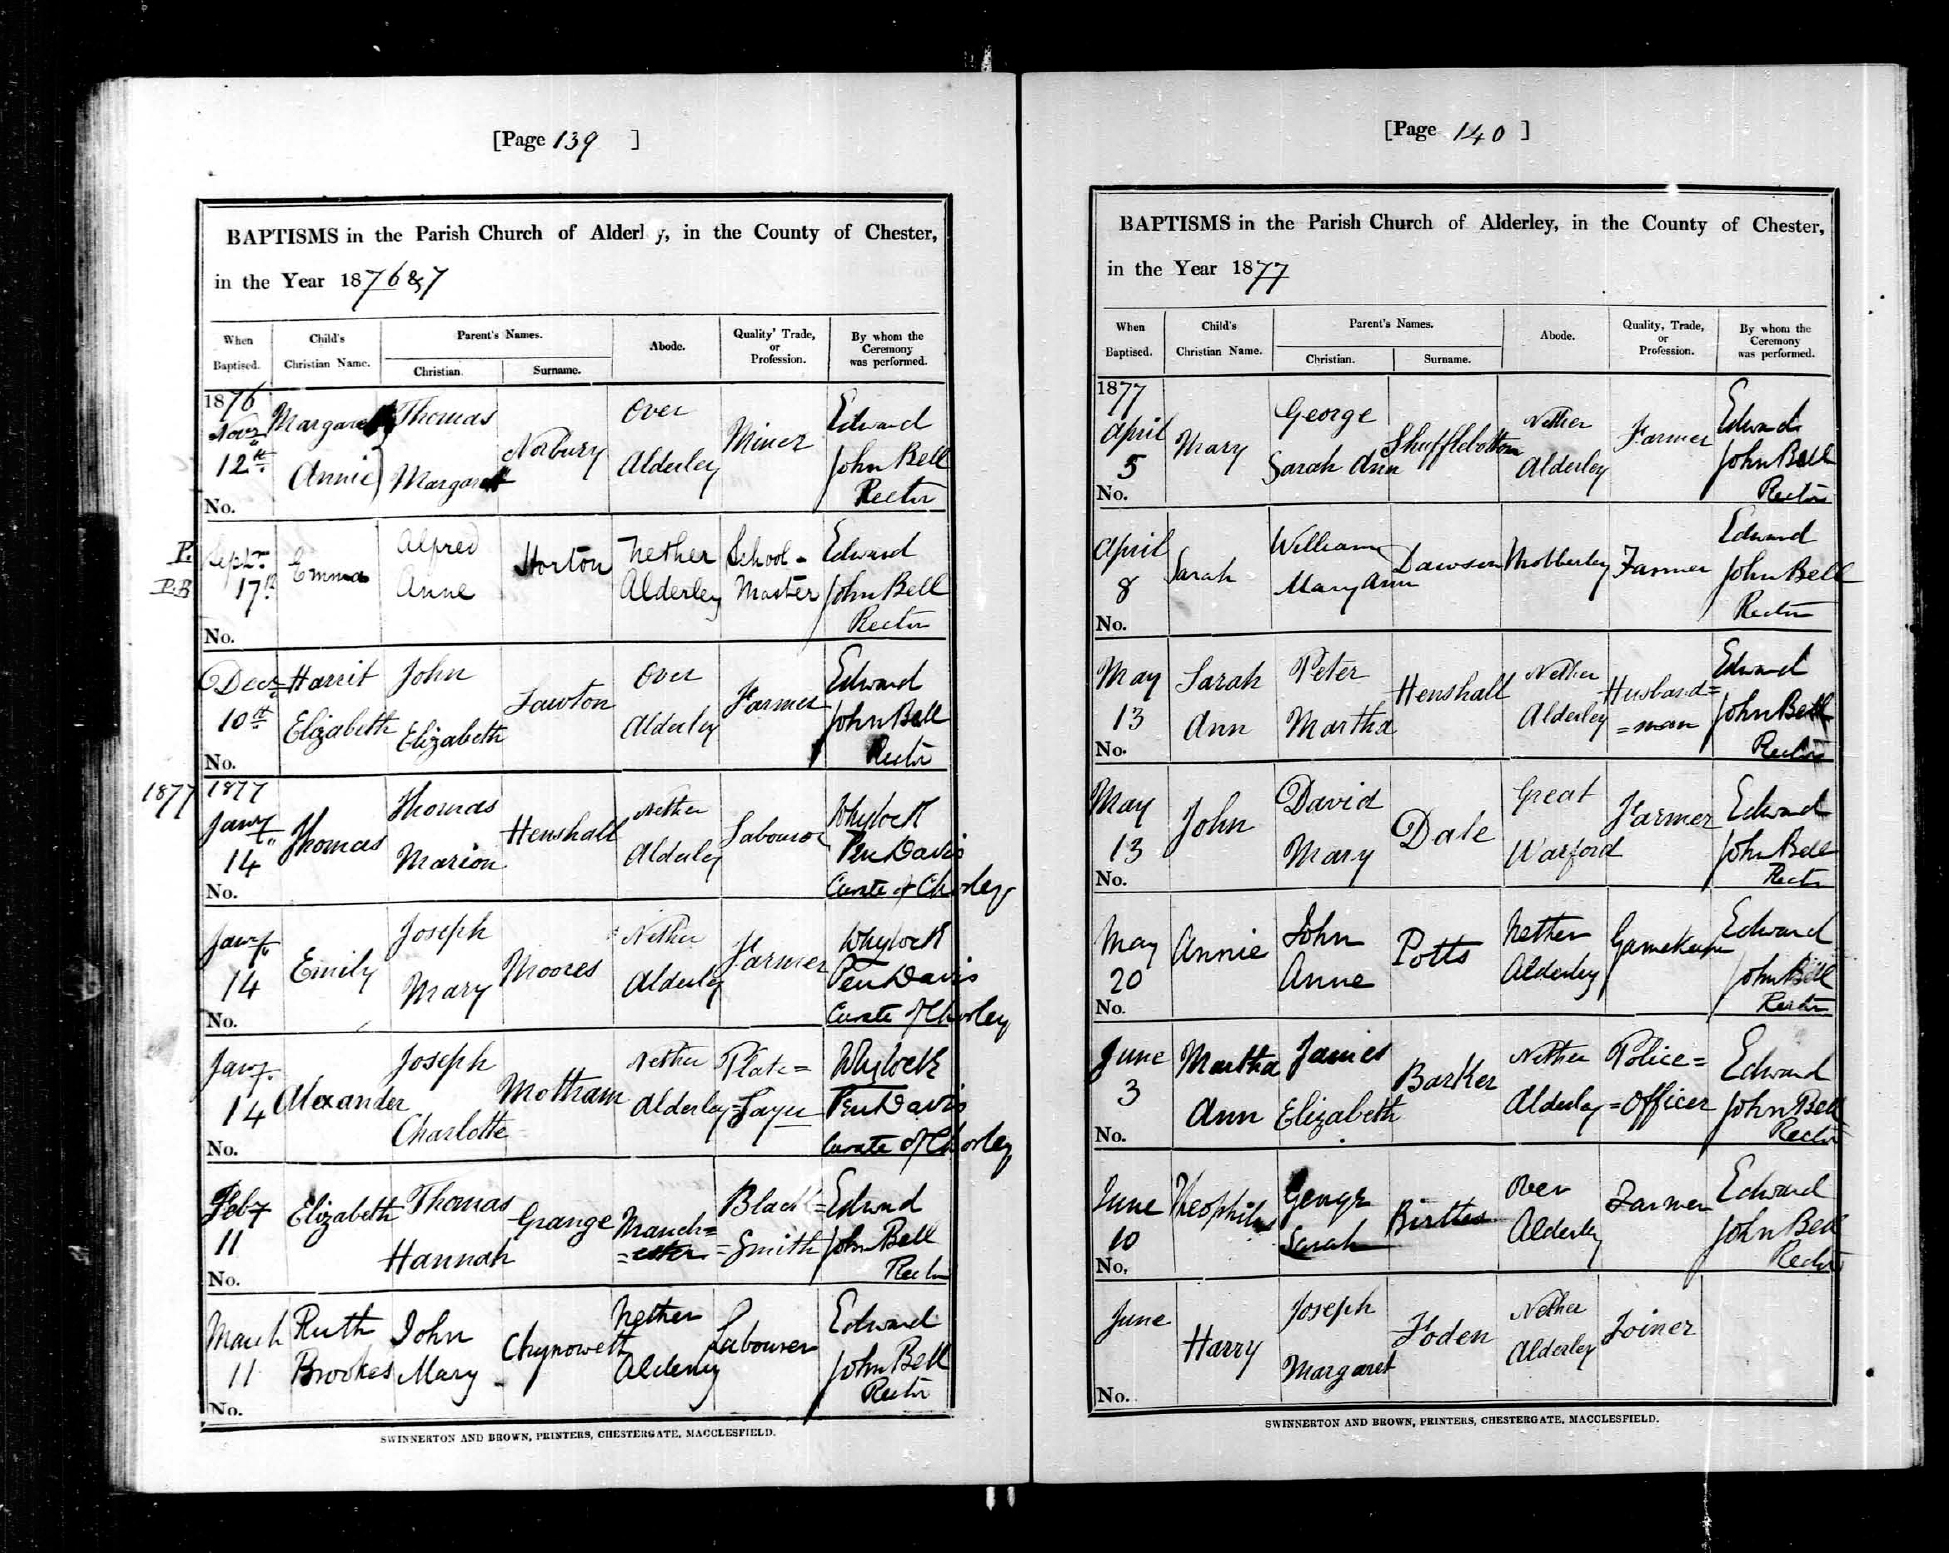 [Page 139 ]
BAPTISMS in the Parish Church of Alderl y, in the County of Chester,
in the Year 1876 & 7
When Baptised. Child's Christian Name. Parent's Names. Christian. Surname. Abode. Quality' Trade, or Profession. By whom the Ceremony was performed.
1876
Novr 12th Margaret Annie Thomas Margaret Norbury Over Alderley Miner Edward John Bell Rector
No.
P.
P.B
Septr 17th Emma Alfred Anne Horton Nether Alderley School-Master Edward John Bell Rector
No.
Decr 10th Harrit Elizabeth John Elizabeth Lawton Over Alderley Farmer Edward John Bell Rector
No.
1877
1877
Jany 14 Thomas Thomas Marion Henshall Nether Alderley Labourer Whylock Pendavis Curate of Chorley
No.
Jany 14 Emily Joseph Mary Moores Nether Alderley Farmer Whylock Pendavis Curate of Chorley
No.
Jany. 14 Alexander Joseph Charlotte Mottram Nether Alderley Plate= =Layer Whylock Pendavis Curate of Chorley
No.
Feby 11 Elizabeth Thomas Hannah Grange Manch= =ester Black= =Smith Edward John Bell Rector
No.
March 11 Ruth Brookes John Mary Chynoweth Nether Alderley Labourer Edward John Bell Rector
No.
SWINNERTON AND BROWN, PRINTERS, CHESTERGATE, MACCLESFIELD.
[Page 140 ]
BAPTISMS in the Parish Church of Alderley, in the County of Chester,
in the Year 1877
When Baptised. Child's Christian Name. Parent's Names. Christian. Surname. Abode. Quality, Trade, or Profession. By whom the Ceremony was performed.
1877
April 5 Mary George Sarah Ann Shufflebottom Nether Alderley Farmer Edward John Bell Rector
No.
April 8 Sarah William Mary Ann Dawson Mobberley Farmer Edward John Bell Rector
No.
May 13 Sarah Ann Peter Martha Henshall Nether Alderley Husband= =man Edward John Bell Rector
No.
May 13 John David Mary Dale Great Warford Farmer Edward John Bell Rector
No.
May 20 Annie John Anne Potts Nether Alderley Gamekeeper Edward John Bell Rector
No.
June 3 Martha Ann James Elizabeth Barker Nether Alderley Police= =Officer Edward John Bell Rector
No.
June 10 Theophilus George Sarah Birtles Over Alderley Farmer Edward John Bell Rector
No.
June Harry Joseph Margaret Foden Nether Alderley Joiner
No.
SWINNERTON AND BROWN, PRINTERS, CHESTERGATE, MACCLESFIELD.